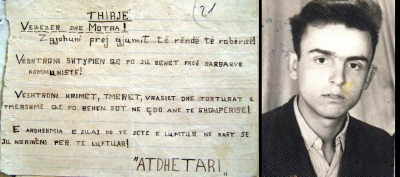 THIRJE
(21
VËLLEZËR DHE MOTRA!
Zgjohuni prej gjumit të rëndë të robërisë!
VËSHTRONI SHTYPJEN QË PO JU BËHET PREJ BARBARVE
KOMUNISTË!
VËSHTRONI KRIMET, TMERET, VRASJET DHE TORTURAT E
TMERSHME QË PO BËHEN SOT NË ÇDO ANË TË SHQIPËRISË!
E ARDHSHMJA E JUAJ DO TË JETË E LUMTUR NË RAST SE
JU NGRIHENI PËR TË LUFTUAR!
"ATDHETARI"